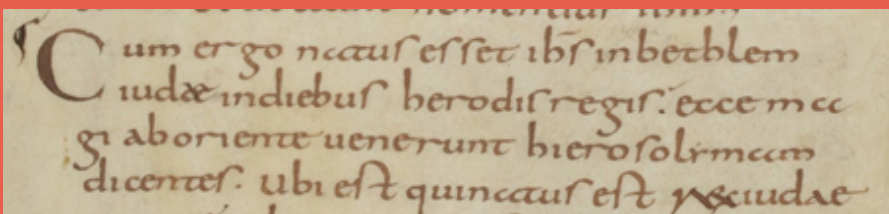 Cum ergo natus esset ihs in bethlem
iudae in diebus herodis regis. ecce ma
gi ab oriente uenerunt hierosolimam
dicentes. Ubi est qui natus est rex iudae